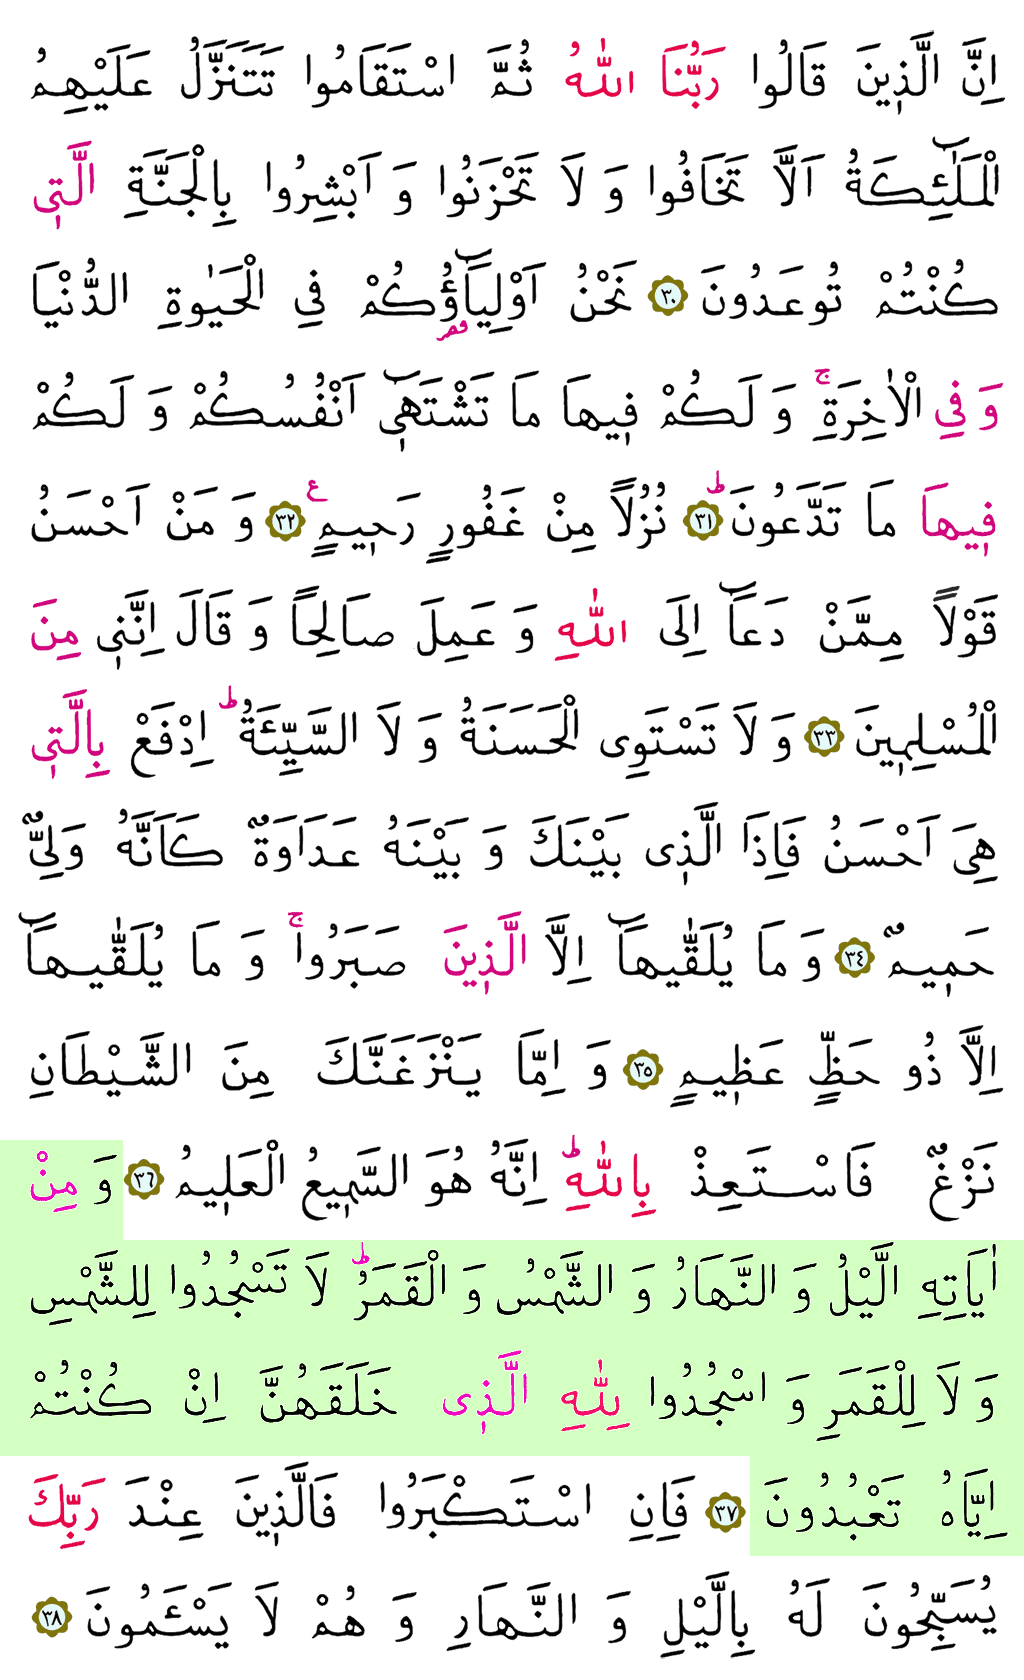 اِنَّ الَّذٖينَ قَالُوا رَبُّنَا اللّٰهُ ثُمَّ اسْتَقَامُوا تَتَنَزَّلُ عَلَيْهِمُ
الْمَلٰٓئِكَةُ اَلَّا تَخَافُوا وَ لَا تَحْزَنُوا وَ اَبْشِرُوا بِالْجَنَّةِ الَّتٖى
كُنْتُمْ تُوعَدُونَ ﴿٣٠﴾ نَحْنُ اَوْلِيَٓاؤُكُمْ فِى الْحَيٰوةِ الدُّنْيَا
وَ فِى الْاٰخِرَةِۚ وَ لَكُمْ فٖيهَا مَا تَشْتَهٖٓى اَنْفُسُكُمْ وَ لَكُمْ
فٖيهَا مَا تَدَّعُونَؕ ﴿٣١﴾ نُزُلًا مِنْ غَفُورٍ رَحٖيمٍ ع ﴿٣٢﴾ وَ مَنْ اَحْسَنُ
قَوْلًا مِمَّنْ دَعَٓا اِلَى اللّٰهِ وَ عَمِلَ صَالِحًا وَ قَالَ اِنَّنٖى مِنَ
الْمُسْلِمٖينَ ﴿٣٣﴾ وَ لَا تَسْتَوِى الْحَسَنَةُ وَ لَا السَّيِّئَةُؕ اِدْفَعْ بِالَّتٖى
هِىَ اَحْسَنُ فَاِذَا الَّذٖى بَيْنَكَ وَ بَيْنَهُ عَدَاوَةٌ كَاَنَّهُ وَلِىٌّ
حَمٖيمٌ ﴿٣٤﴾ وَ مَا يُلَقّٰيهَٓا اِلَّا الَّذٖينَ صَبَرُواۚ وَ مَا يُلَقّٰيهَٓا
اِلَّا ذُو حَظٍّ عَظٖيمٍ ﴿٣٥﴾ وَ اِمَّا يَنْزَغَنَّكَ مِنَ الشَّيْطَانِ
نَزْغٌ فَاسْتَعِذْ بِاللّٰهِؕ اِنَّهُ هُوَ السَّمٖيعُ الْعَلٖيمُ ﴿٣٦﴾ وَ مِنْ
اٰيَاتِهِ الَّيْلُ وَ النَّهَارُ وَ الشَّمْسُ وَ الْقَمَرُؕ لَا تَسْجُدُوا لِلشَّمْسِ
وَ لَا لِلْقَمَرِ وَ اسْجُدُوا لِلّٰهِ الَّذٖى خَلَقَهُنَّ اِنْ كُنْتُمْ
اِيَّاهُ تَعْبُدُونَ ﴿٣٧﴾ فَاِنِ اسْتَكْبَرُوا فَالَّذٖينَ عِنْدَ رَبِّكَ
يُسَبِّحُونَ لَهُ بِالَّيْلِ وَ النَّهَارِ وَ هُمْ لَا يَسْئَمُونَ ﴿٣٨﴾